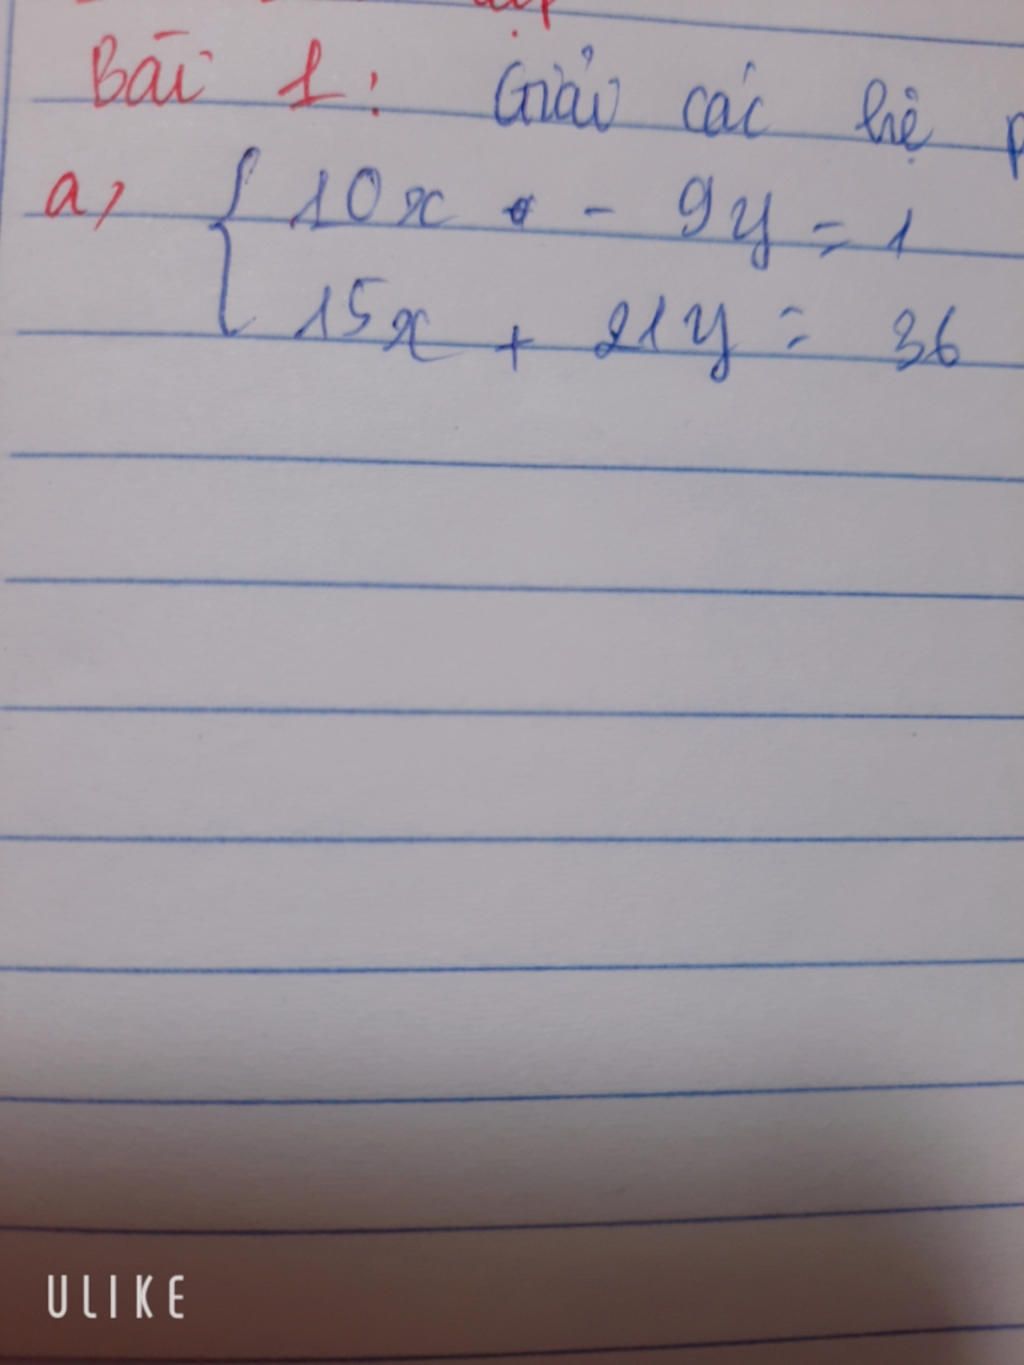 Bài 1: Giải các hệ
a, { 10x - 9y = 1
15x + 21y = 36
ULIKE